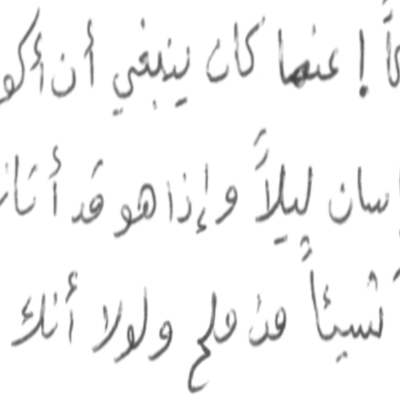 ! عنها كان ينبغي أن أكو
سان ليلاً وإذا هو قد أتا
شيئاً من ملح ولولا أنك